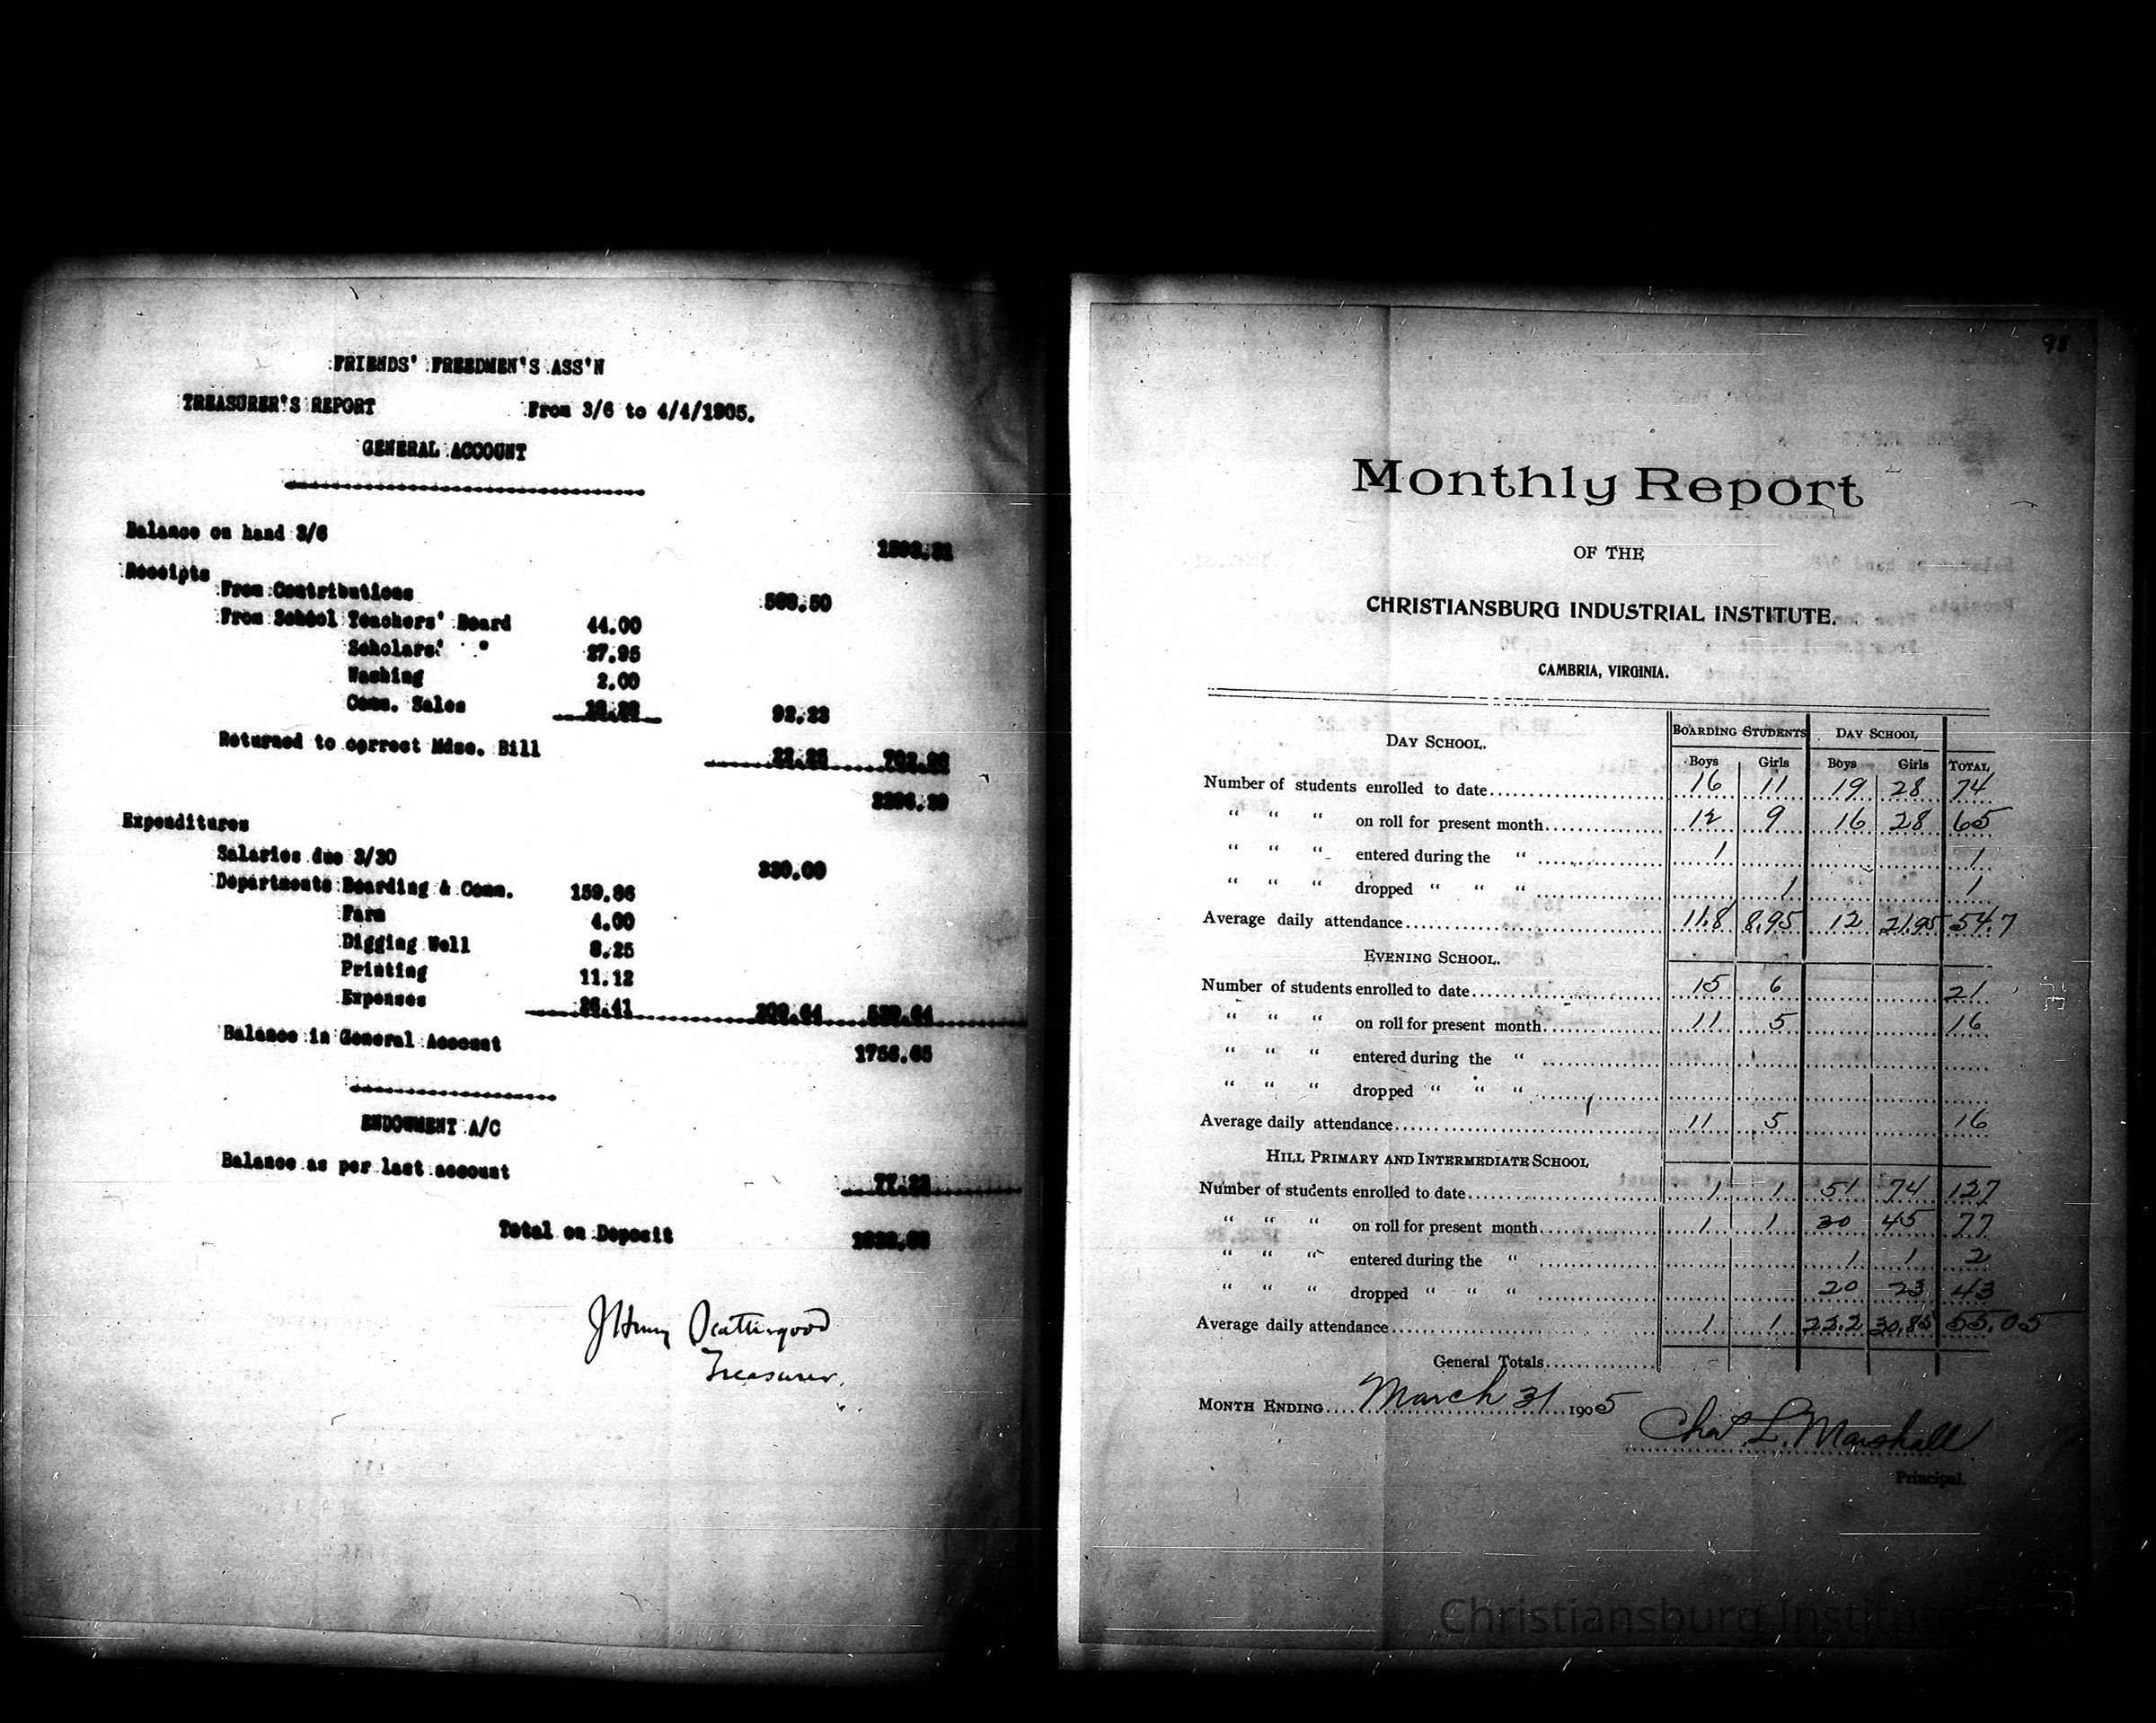 FRIENDS' FREEDMEN'S ASS'N
TREASURER'S REPORT From 3/6 to 4/4/1905.
GENERAL ACCOUNT
Balance on hand 3/6
Receipts
From Contributions .50
From School Teachers' Board 44.00
Scholars' " 27.95
Washing 2.00
Comm. Sales 92.23
Returned to correct Mdse. Bill
Expenditures
Salaries due 3/30 330.00
Departments Boarding & Comm. 159.86
Farm 4.00
Digging Well 8.25
Printing 11.12
Expenses 26.41 209.64 539.64
Balance in General Account 1756.65
ENDOWMENT A/C
Balance as per last account
Total on Deposit
J Henry Scattergood
Treasurer.
98
Monthly Report
OF THE
CHRISTIANSBURG INDUSTRIAL INSTITUTE.
CAMBRIA, VIRGINIA.
DAY SCHOOL. BOARDING STUDENTS DAY SCHOOL
Boys Girls Boys Girls TOTAL
Number of students enrolled to date 16 11 19 28 74
" " " on roll for present month 12 9 16 28 65
" " " entered during the " 1 1
" " " dropped " " " 1 1
Average daily attendance 11.8 8.95 12 21.95 54.7
EVENING SCHOOL.
Number of students enrolled to date 15 6 21
" " " on roll for present month 11 5 16
" " " entered during the "
" " " dropped " " "
Average daily attendance 11 5 16
HILL PRIMARY AND INTERMEDIATE SCHOOL
Number of students enrolled to date 1 1 51 74 127
" " " on roll for present month 1 1 30 45 77
" " " entered during the " 1 1 2
" " " dropped " " " 20 23 43
Average daily attendance 1 1 22.2 30.85 55.05
General Totals
MONTH ENDING March 31 1905
Chas. L. Marshall
Principal.
Christiansburg Institute